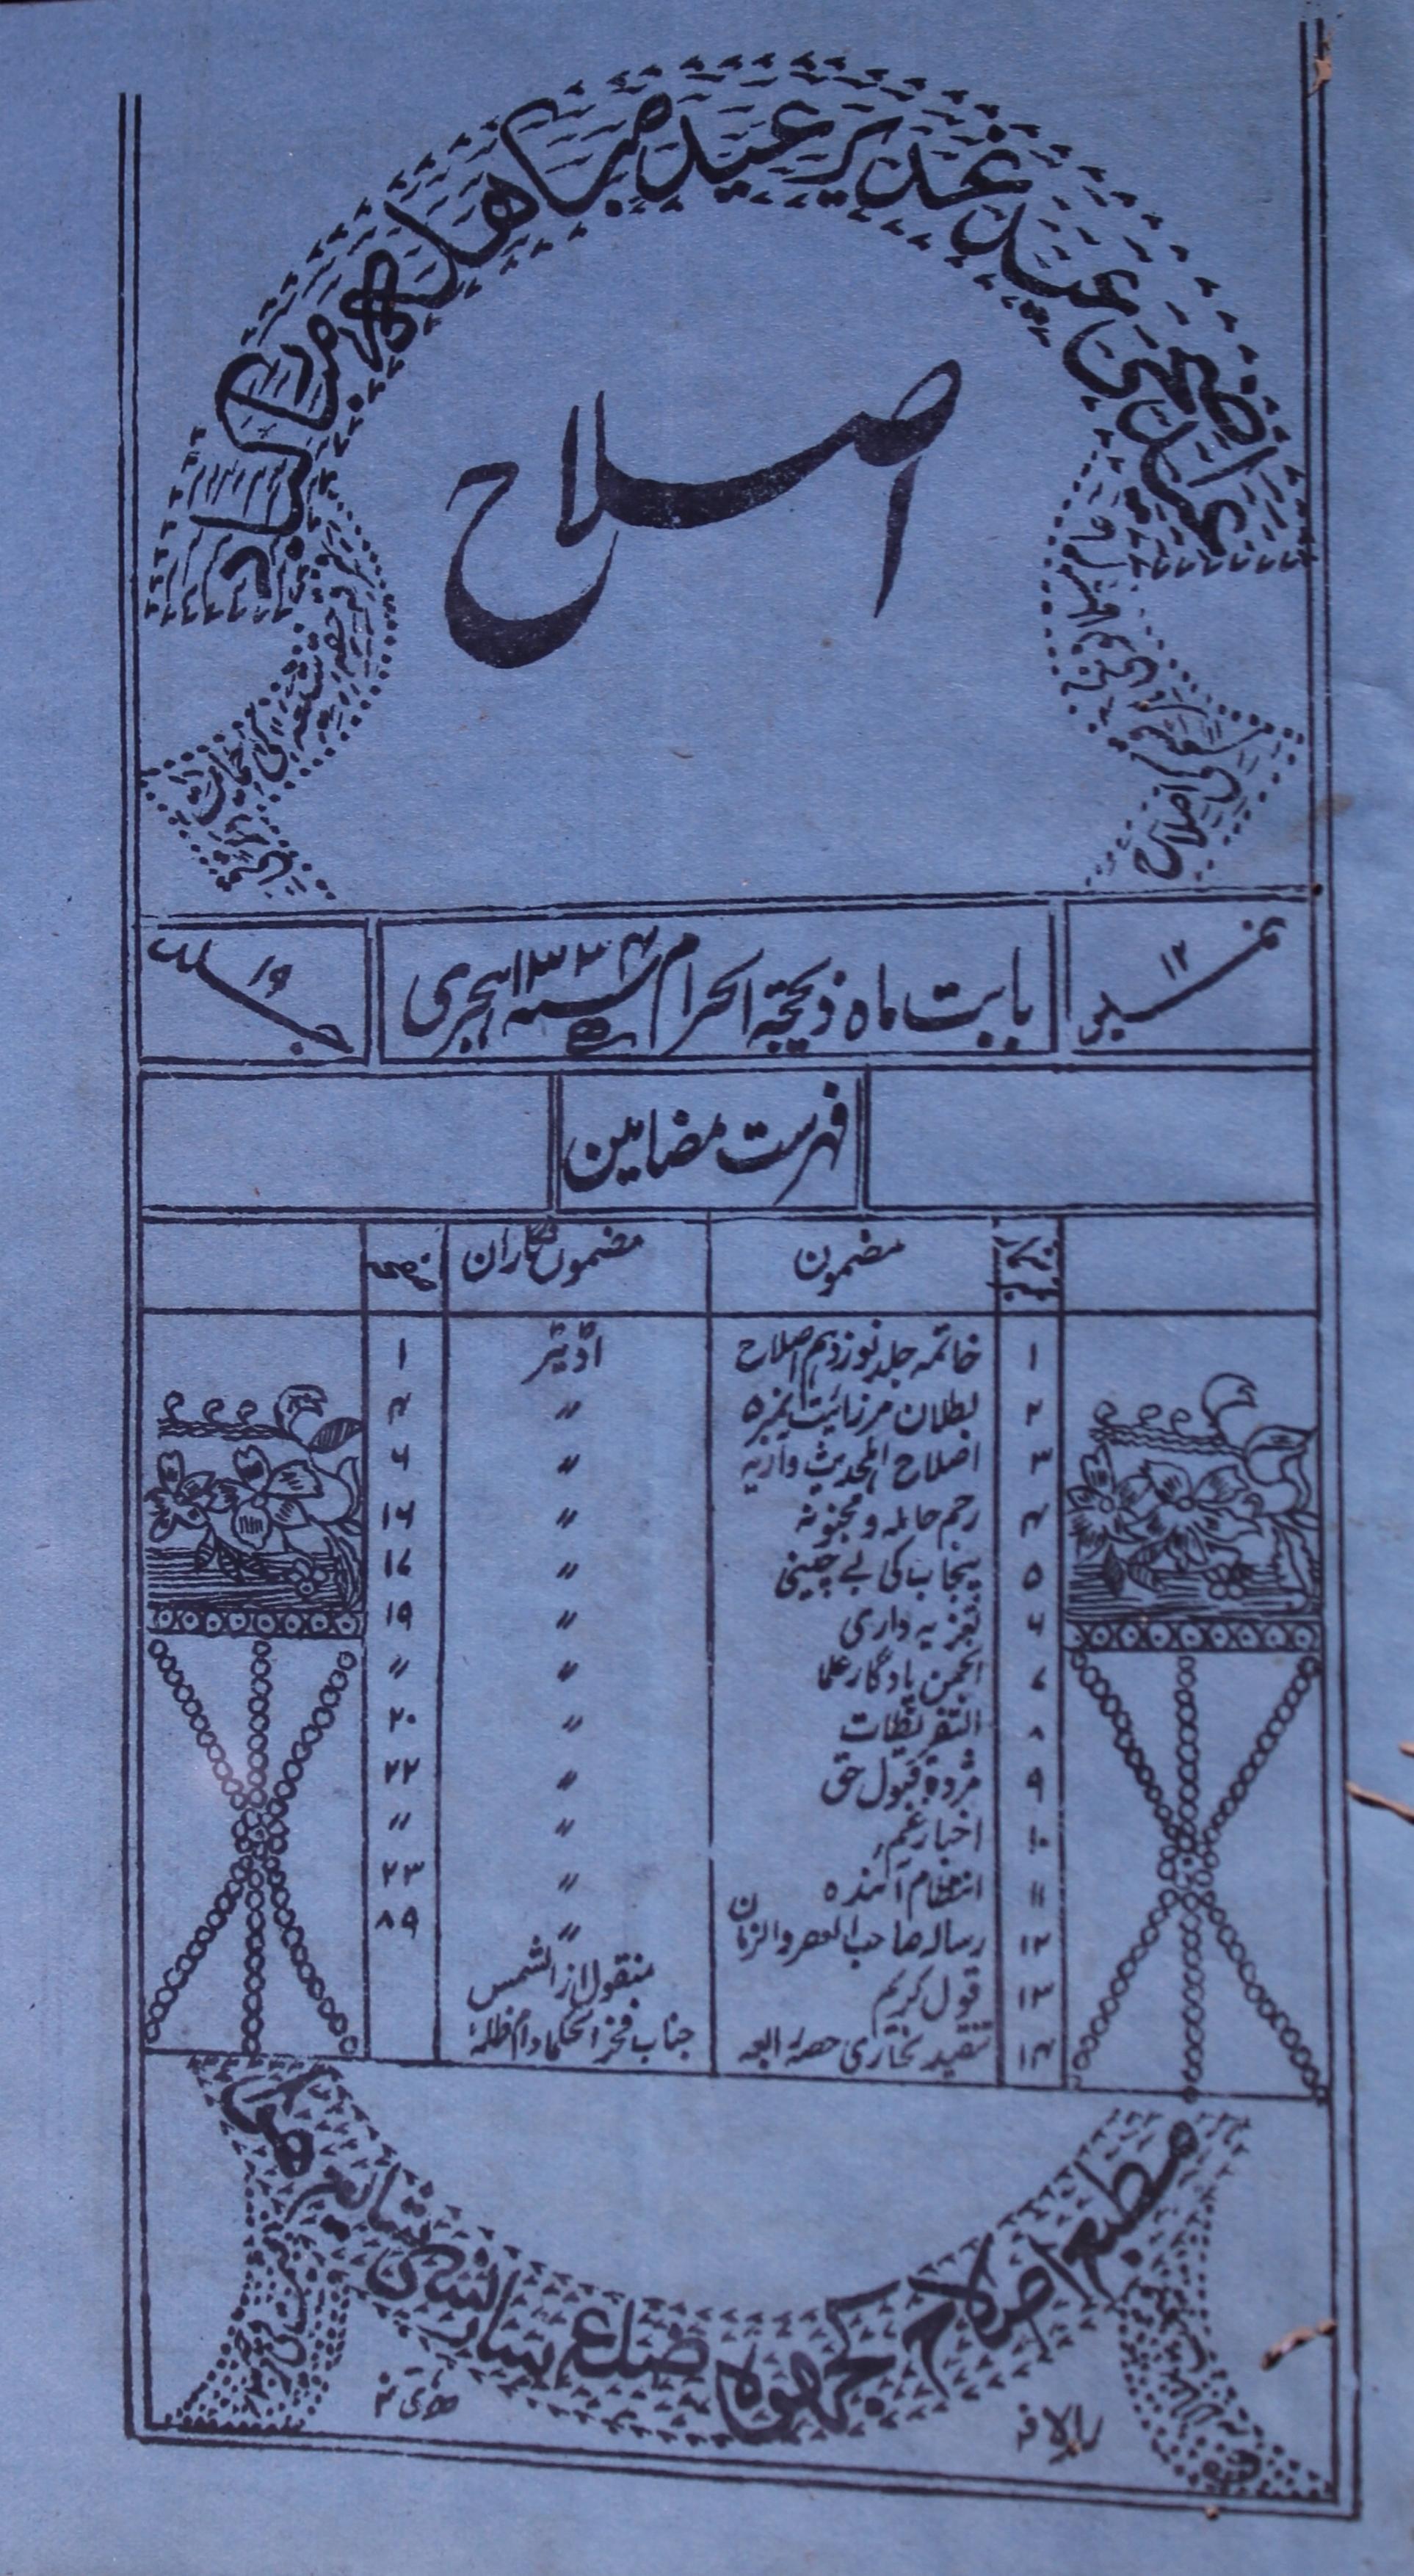 عید اضحیٰ عید غدیر عید مباهله مبارک
اصلاح
نمبر ۱۲
بابت ماہ ذیحجۃ الحرام سنہ ۱۳۳۴ ہجری
جلد ۱۹
فہرست مضامین
نمبر شمار مضمون مضمون نگاران صفحہ
۱ خاتمہ جلد نوزدہم اصلاح اڈیٹر ۱
۲ بطلان مرزائیت نمبر ۵ ״ ۴
۳ اصلاح اہلحدیث و آریہ ״ ۶
۴ رجم حاملہ و مجنونہ ״ ۱۴
۵ پنجاب کی بے چینی ״ ۱۶
۶ تعزیہ داری ״ ۱۹
۷ انجمن یادگار علما ״ ״
۸ التقریظات ״ ۲۰
۹ مژدۂ قبول حق ״ ۲۲
۱۰ اخبار غم ״ ״
۱۱ انتظام آئندہ ״ ۲۳
۱۲ رسالہ صاحب العصر والزمان ״ ۸۹
۱۳ قول کریم منقول از الشمس
۱۴ تنقید بخاری حصہ رابعہ جناب فخر الحکما دام ظلہ
مطبع اصلاح کجھوہ ضلع سارن سے شایع ہوا